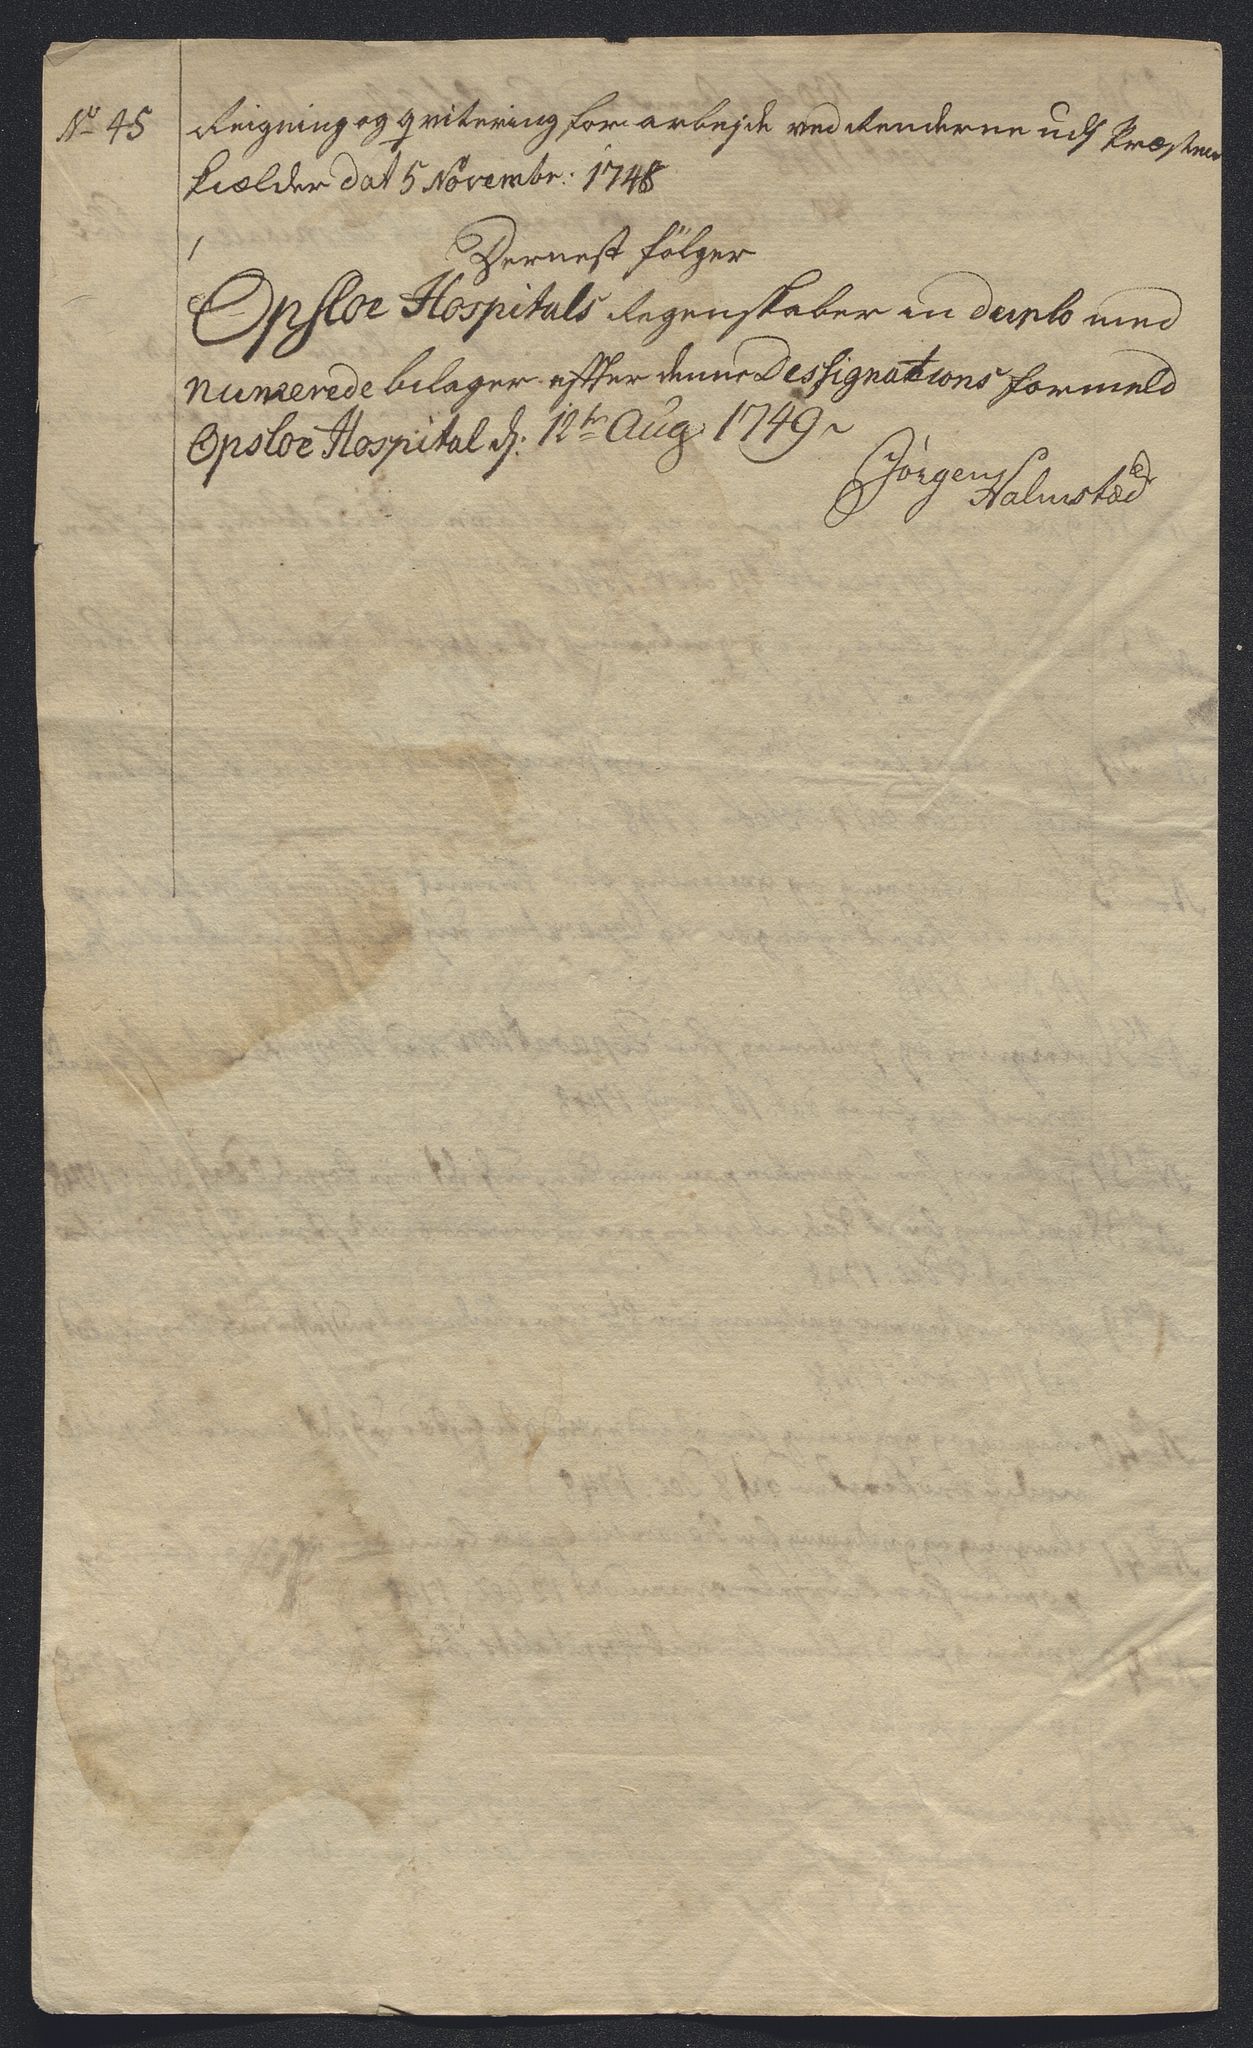 No 45 Reigning og qvitering for arbejde ved Renderne udj Præstens
kielder dat 5 Novembr: 1748
Dernest følger
Opsloe Hospitals Regenskaber in duplo med
Numerede bilager effter denne Dessignations formeld
Opsloe Hospital d: 12te Aug: 1749
Jörgen Halmstæd